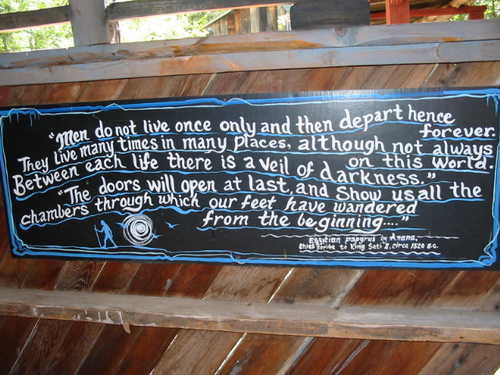 "Men do not live once only and then depart hence forever.
They live many times in many places, although not always on this world.
Between each life there is a veil of darkness."
"The doors will open at last, and show us all the
chambers through which our feet have wandered
from the beginning...."
Egyptian papyrus
scribe to King Seti II, circa 1320 B.C.